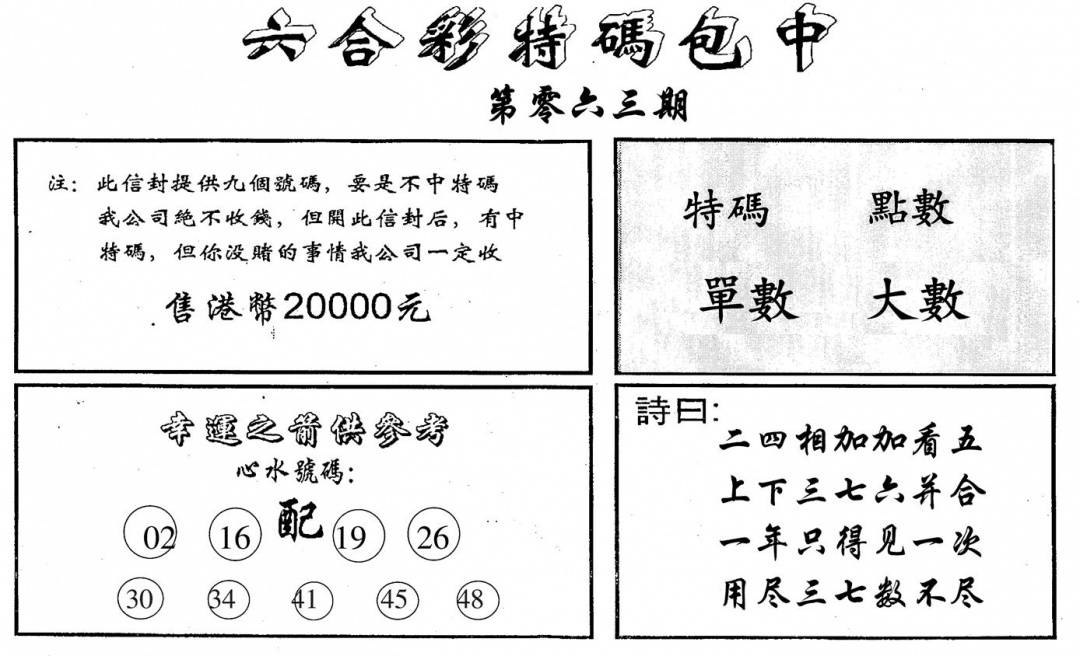 六合彩特碼包中
第零六三期
注：此信封提供九個號碼，要是不中特碼
我公司絕不收錢，但開此信封后，有中
特碼，但你没賭的事情我公司一定收
售港幣20000元
特碼 點數
單數 大數
幸運之箭供參考
心水號碼：
配
02 16 19 26
30 34 41 45 48
詩曰：
二四相加加看五
上下三七六并合
一年只得见一次
用尽三七数不尽